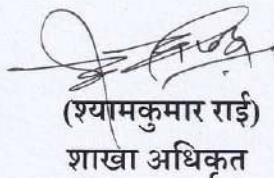 (श्यामकुमार राई)
शाखा अधिकृत